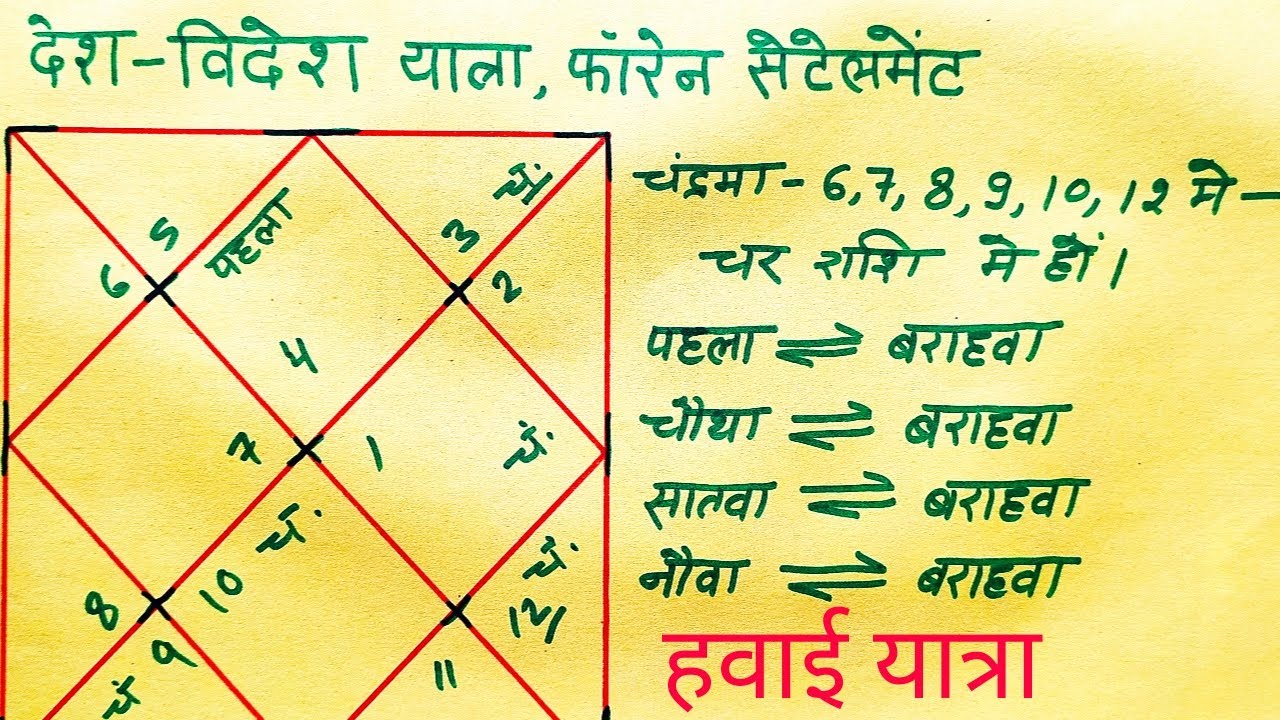 देश-विदेश यात्रा, फॉरेन सेटेलमेंट
चंद्रमा - 6, 7, 8, 9, 10, 12 मे -
चर राशि मे हों।
पहला ⇌ बराहवा
चौथा ⇌ बराहवा
सातवा ⇌ बराहवा
नौवा ⇌ बराहवा
हवाई यात्रा
चं.
5
पहला
3
6
2
4
7
1
चं.
चं.
चं.
8
10
12
9
11
चं